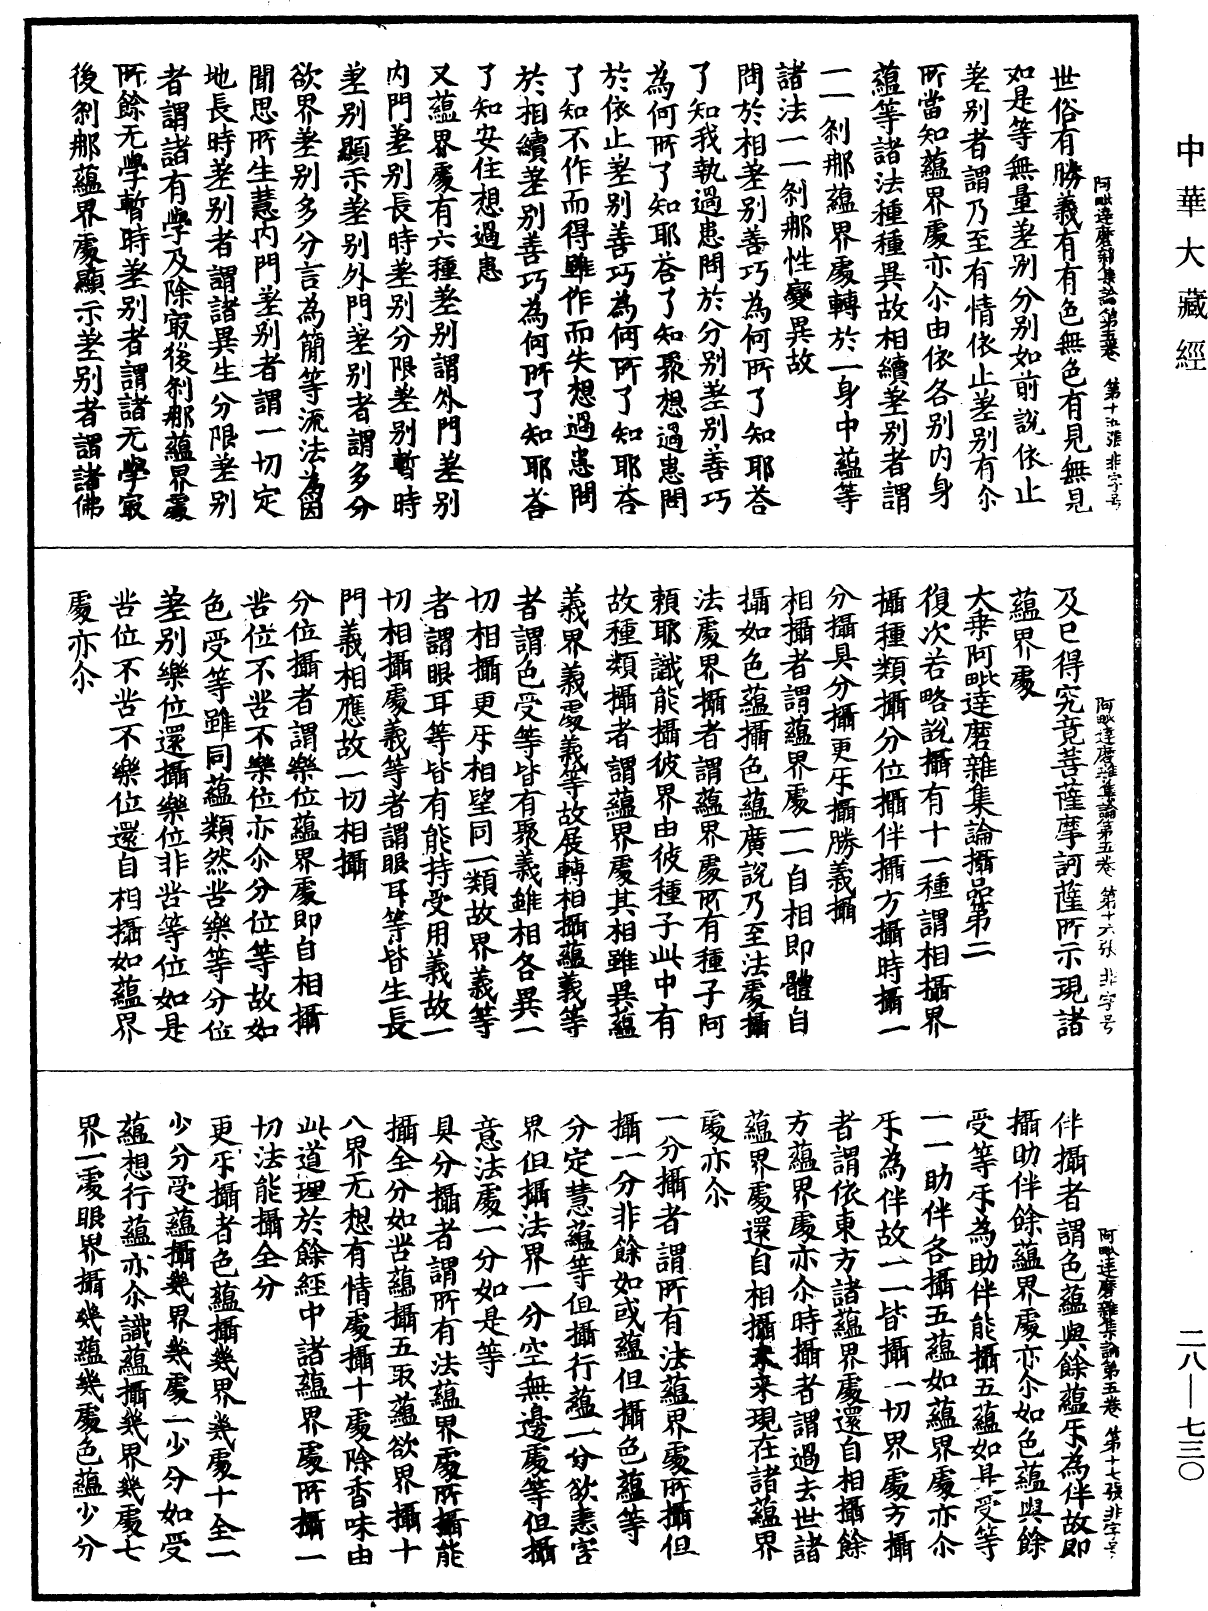 中華大藏經
二八—七三〇
世俗有勝義有有色無色有見無見
阿毗達磨雜集論第五卷 第十五張 非字号
如是等無量差别分别如前說依止
差别者謂乃至有情依止差别有尒
所當知蘊界處亦尒由依各别内身
蘊等諸法種種異故相續差别者謂
一一刹那蘊界處轉於一身中蘊等
諸法一一刹那性變異故
問於相差别善巧為何所了知耶荅
了知我執過患問於分别差别善巧
為何所了知耶荅了知聚想過患問
於依止差别善巧為何所了知耶荅
了知不作而得雖作而失想過患問
於相續差别善巧為何所了知耶荅
了知安住想過患
又蘊界處有六種差别謂外門差别
内門差别長時差别分限差别暫時
差别顯示差别外門差别者謂多分
欲界差别多分言為簡等流法為因
聞思所生慧内門差别者謂一切定
地長時差别者謂諸異生分限差别
者謂諸有學及除㝡後刹那蘊界處
所餘无學暫時差别者謂諸无學㝡
後刹那蘊界處顯示差别者謂諸佛
及已得究竟菩薩摩訶薩所示現諸
阿毗達磨雜集論第五卷 第十六張 非字号
蘊界處
大乘阿毗達磨雜集論攝品第二
復次若略說攝有十一種謂相攝界
攝種類攝分位攝伴攝方攝時攝一
分攝具分攝更㸦攝勝義攝
相攝者謂蘊界處一一自相即體自
攝如色蘊攝色蘊廣說乃至法處攝
法處界攝者謂蘊界處所有種子阿
賴耶識能攝彼界由彼種子此中有
故種類攝者謂蘊界處其相雖異蘊
義界義處義等故展轉相攝蘊義等
者謂色受等皆有聚義雖相各異一
切相攝更㸦相望同一類故界義等
者謂眼耳等皆有能持受用義故一
切相攝處義等者謂眼耳等皆生長
門義相應故一切相攝
分位攝者謂樂位蘊界處即自相攝
苦位不苦不樂位亦尒分位等故如
色受等雖同蘊類然苦樂等分位
差别樂位還攝樂位非苦等位如是
苦位不苦不樂位還自相攝如蘊界
處亦尒
伴攝者謂色蘊與餘蘊㸦為伴故即
阿毗達磨雜集論第五卷 第十七張 非字号
攝助伴餘蘊界處亦尒如色蘊與餘
受等㸦為助伴能攝五蘊如是受等
一一助伴各攝五蘊如蘊界處亦尒
㸦為伴故一一皆攝一切界處方攝
者謂依東方諸蘊界處還自相攝餘
方蘊界處亦尒時攝者謂過去世諸
蘊界處還自相攝未来現在諸蘊界
處亦尒
一分攝者謂所有法蘊界處所攝但
攝一分非餘如或蘊但攝色蘊等
分定慧蘊等但攝行蘊一分欲恚害
界但攝法界一分空無邊處等但攝
意法處一分如是等
具分攝者謂所有法蘊界處所攝能
攝全分如苦蘊攝五取蘊欲界攝十
八界无想有情處攝十處除香味由
此道理於餘經中諸蘊界處所攝一
切法能攝全分
更㸦攝者色蘊攝幾界幾處十全一
少分受蘊攝幾界幾處一少分如受
蘊想行蘊亦尒識蘊攝幾界幾處七
界一處眼界攝幾蘊幾處色蘊少分